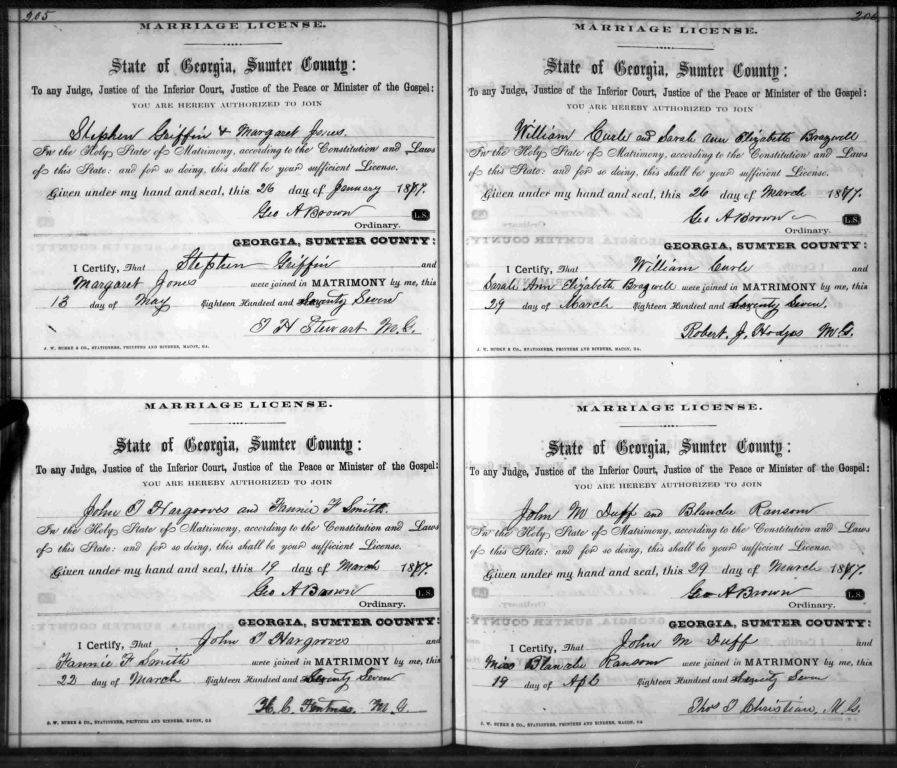 205
MARRIAGE LICENSE.
State of Georgia, Sumter County:
To any Judge, Justice of the Inferior Court, Justice of the Peace or Minister of the Gospel:
YOU ARE HEREBY AUTHORIZED TO JOIN
Stephen Griffin & Margaret Jones.
In the Holy State of Matrimony, according to the Constitution and Laws
of this State: and for so doing, this shall be your sufficient License.
Given under my hand and seal, this 26 day of January 1877.
Geo A Brown L.S.
Ordinary.
GEORGIA, SUMTER COUNTY:
I Certify, That Stephen Griffin and
Margaret Jones were joined in MATRIMONY by me, this
13 day of May Eighteen Hundred and Seventy Seven
T H Stewart M.G.
J. W. BURKE & CO., STATIONERS, PRINTERS AND BINDERS, MACON, GA.
MARRIAGE LICENSE.
State of Georgia, Sumter County:
To any Judge, Justice of the Inferior Court, Justice of the Peace or Minister of the Gospel:
YOU ARE HEREBY AUTHORIZED TO JOIN
John T Hargroves and Fannie F Smith.
In the Holy State of Matrimony, according to the Constitution and Laws
of this State: and for so doing, this shall be your sufficient License.
Given under my hand and seal, this 19 day of March 1877.
Geo A Brown L.S.
Ordinary.
GEORGIA, SUMTER COUNTY:
I Certify, That John T Hargroves and
Fannie F Smith were joined in MATRIMONY by me, this
22 day of March Eighteen Hundred and Seventy Seven
H. C. M G.
J. W. BURKE & CO., STATIONERS, PRINTERS AND BINDERS, MACON, GA
206
MARRIAGE LICENSE.
State of Georgia, Sumter County:
To any Judge, Justice of the Inferior Court, Justice of the Peace or Minister of the Gospel:
YOU ARE HEREBY AUTHORIZED TO JOIN
William Curle and Sarah Ann Elizabeth Bragwell
In the Holy State of Matrimony, according to the Constitution and Laws
of this State: and for so doing, this shall be your sufficient License.
Given under my hand and seal, this 26 day of March 1877.
Geo A Brown L.S.
Ordinary.
GEORGIA, SUMTER COUNTY:
I Certify, That William Curle and
Sarah Ann Elizabeth Bragwell were joined in MATRIMONY by me, this
29 day of March Eighteen Hundred and Seventy Seven.
Robert. J. Hodges M.G.
J. W. BURKE & CO., STATIONERS, PRINTERS AND BINDERS, MACON, GA.
MARRIAGE LICENSE.
State of Georgia, Sumter County:
To any Judge, Justice of the Inferior Court, Justice of the Peace or Minister of the Gospel:
YOU ARE HEREBY AUTHORIZED TO JOIN
John M Duff and Blanche Ransom
In the Holy State of Matrimony, according to the Constitution and Laws
of this State: and for so doing, this shall be your sufficient License.
Given under my hand and seal, this 29 day of March 1877.
Geo A Brown L.S.
Ordinary.
GEORGIA, SUMTER COUNTY:
I Certify, That John M Duff and
Miss Blanche Ransom were joined in MATRIMONY by me, this
19 day of Apl Eighteen Hundred and Seventy Seven
Thos T Christian, M.G.
J. W. BURKE & CO., STATIONERS, PRINTERS AND BINDERS, MACON, GA.